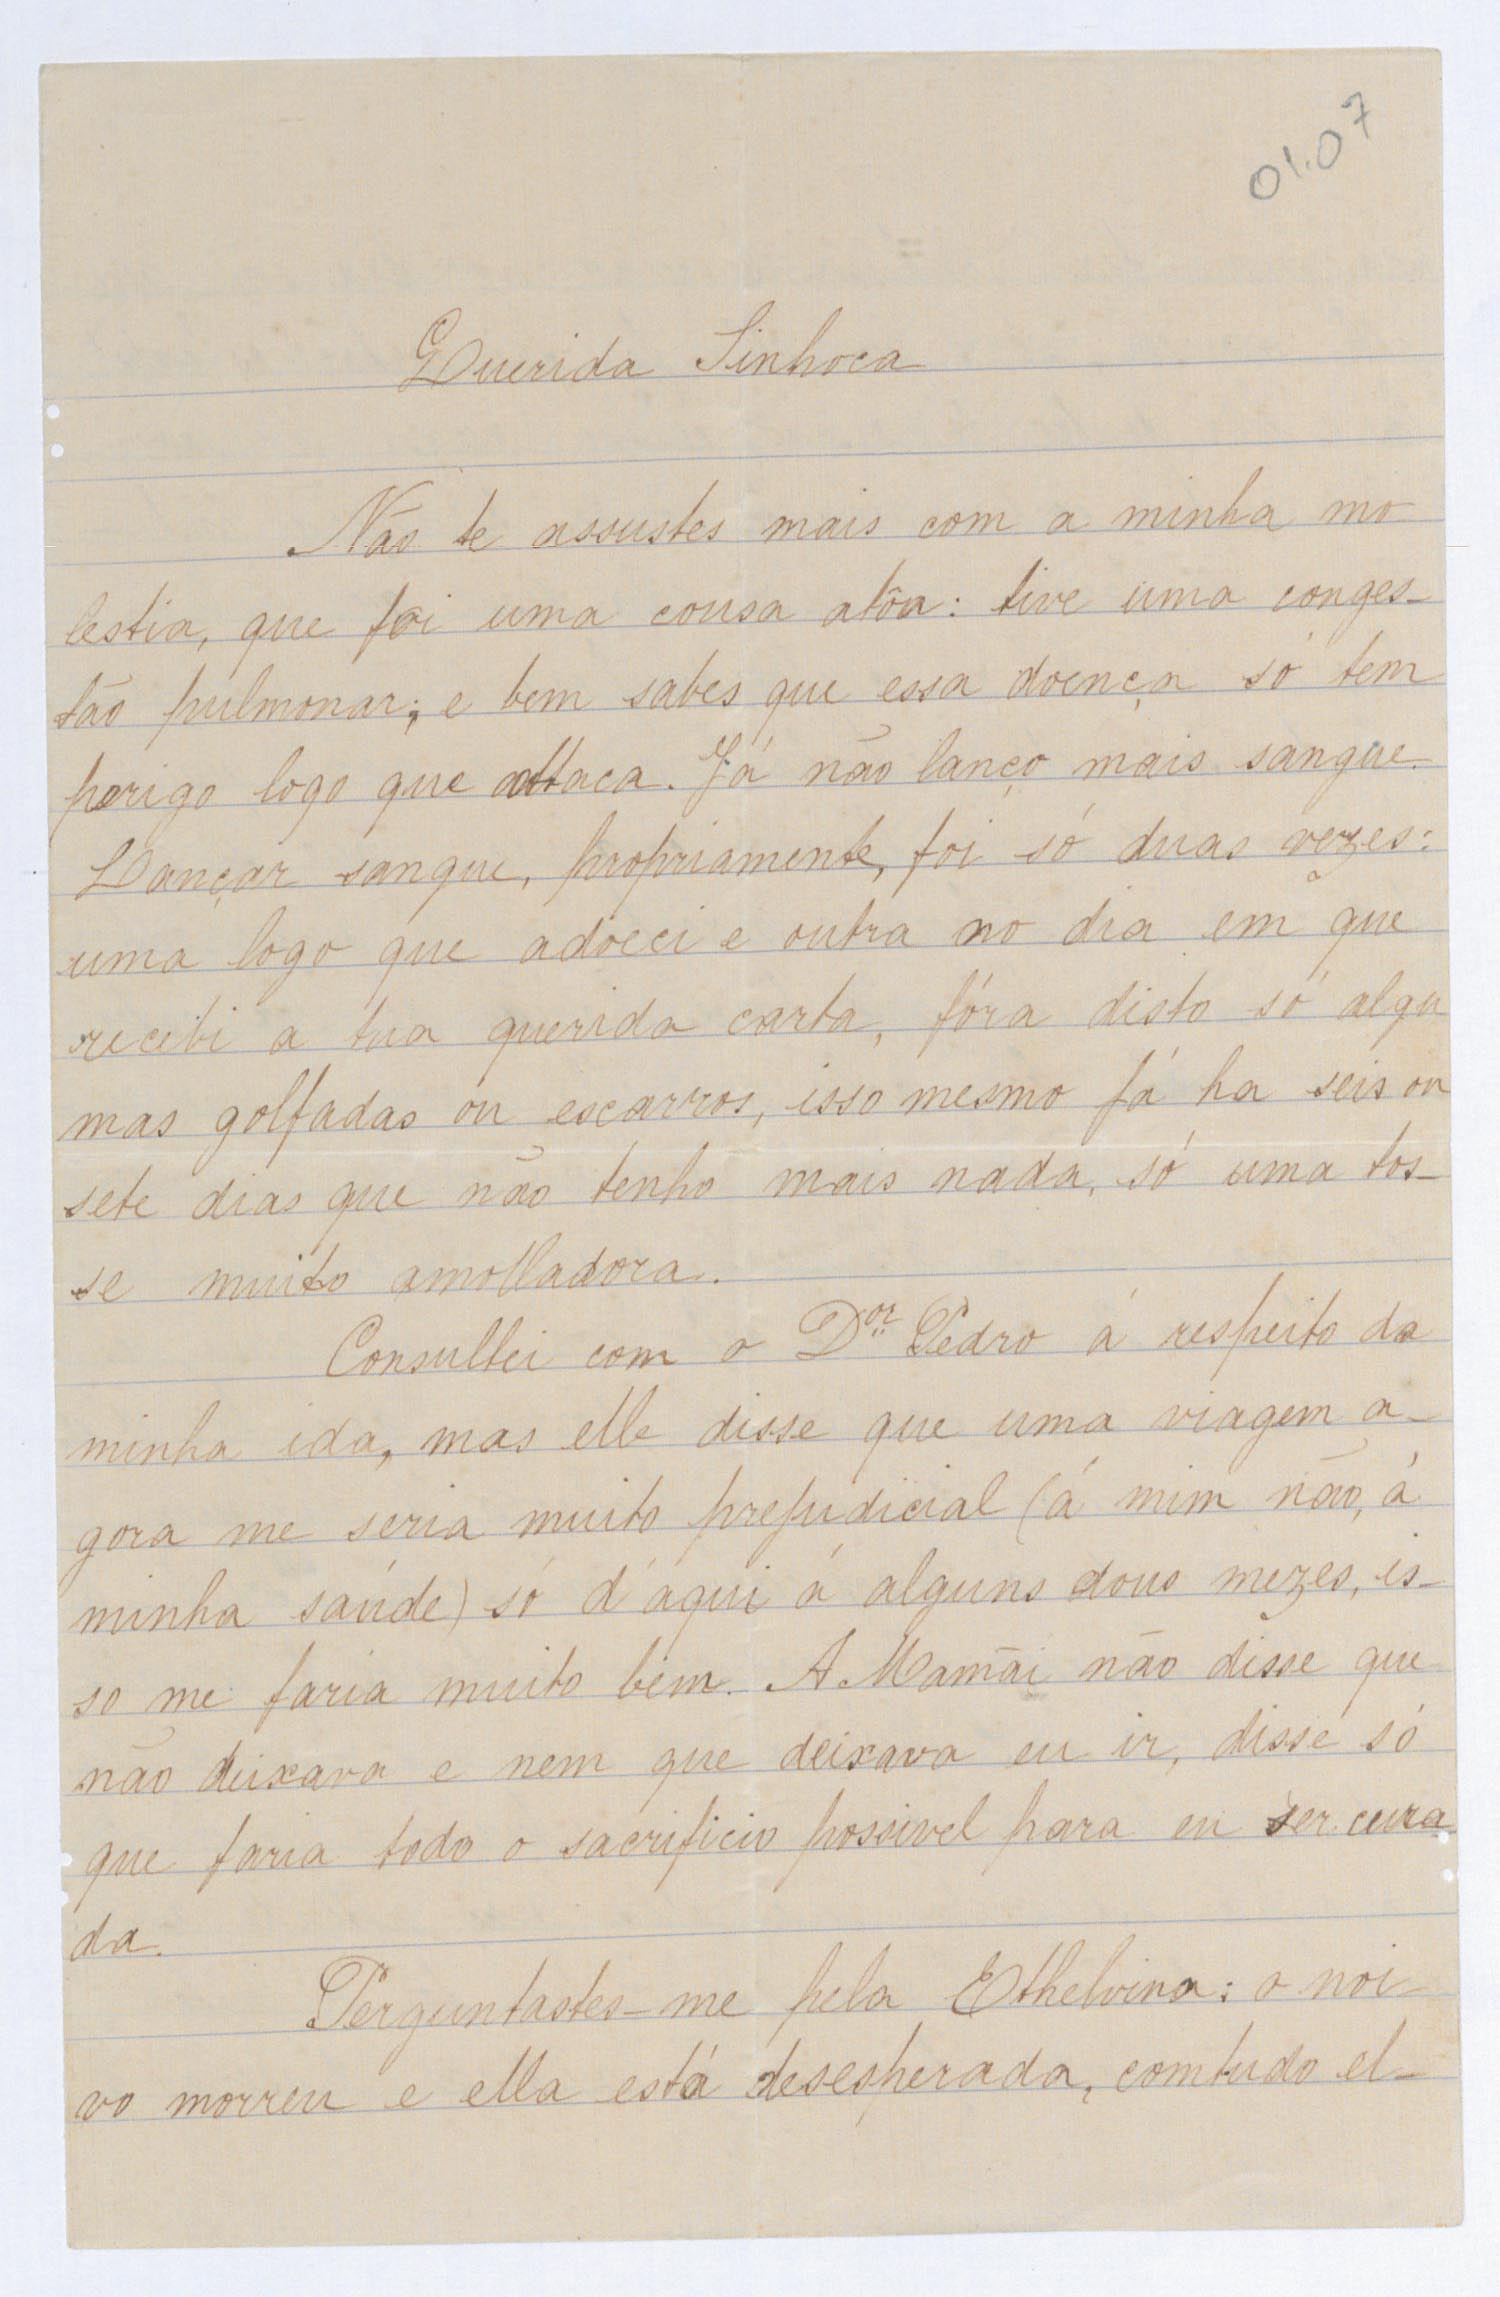 01.07
Querida Sinhoca
Não te assustes mais com a minha mo
lestia, que foi uma cousa atôa: tive uma conges-
tão pulmonar; e bem sabes que essa doença só tem
perigo logo que attaca. Já não lanço mais sangue.
Lançar sangue, propriamente, foi só duas vezes:
uma logo que adoeci e outra no dia em que
recebi a tua querida carta, fóra disto só algu
mas golfadas ou escarros, isso mesmo já ha seis ou
sete dias que não tenho mais nada, só uma tos-
se muito amolladora.
Consultei com o Dor Pedro á respeito da
minha ida, mas elle disse que uma viagem a-
gora me seria muito prejudicial (á mim não, á
minha saúde) só d'aqui á alguns dous mezes, is-
so me faria muito bem. A Mamãi não disse que
não deixava e nem que deixava eu ir, disse só
que faria todo o sacrificio possivel para eu ser cura
da.
Perguntastes-me pela Ethelvina: o noi-
vo morreu e ella está desesperada, comtudo el-